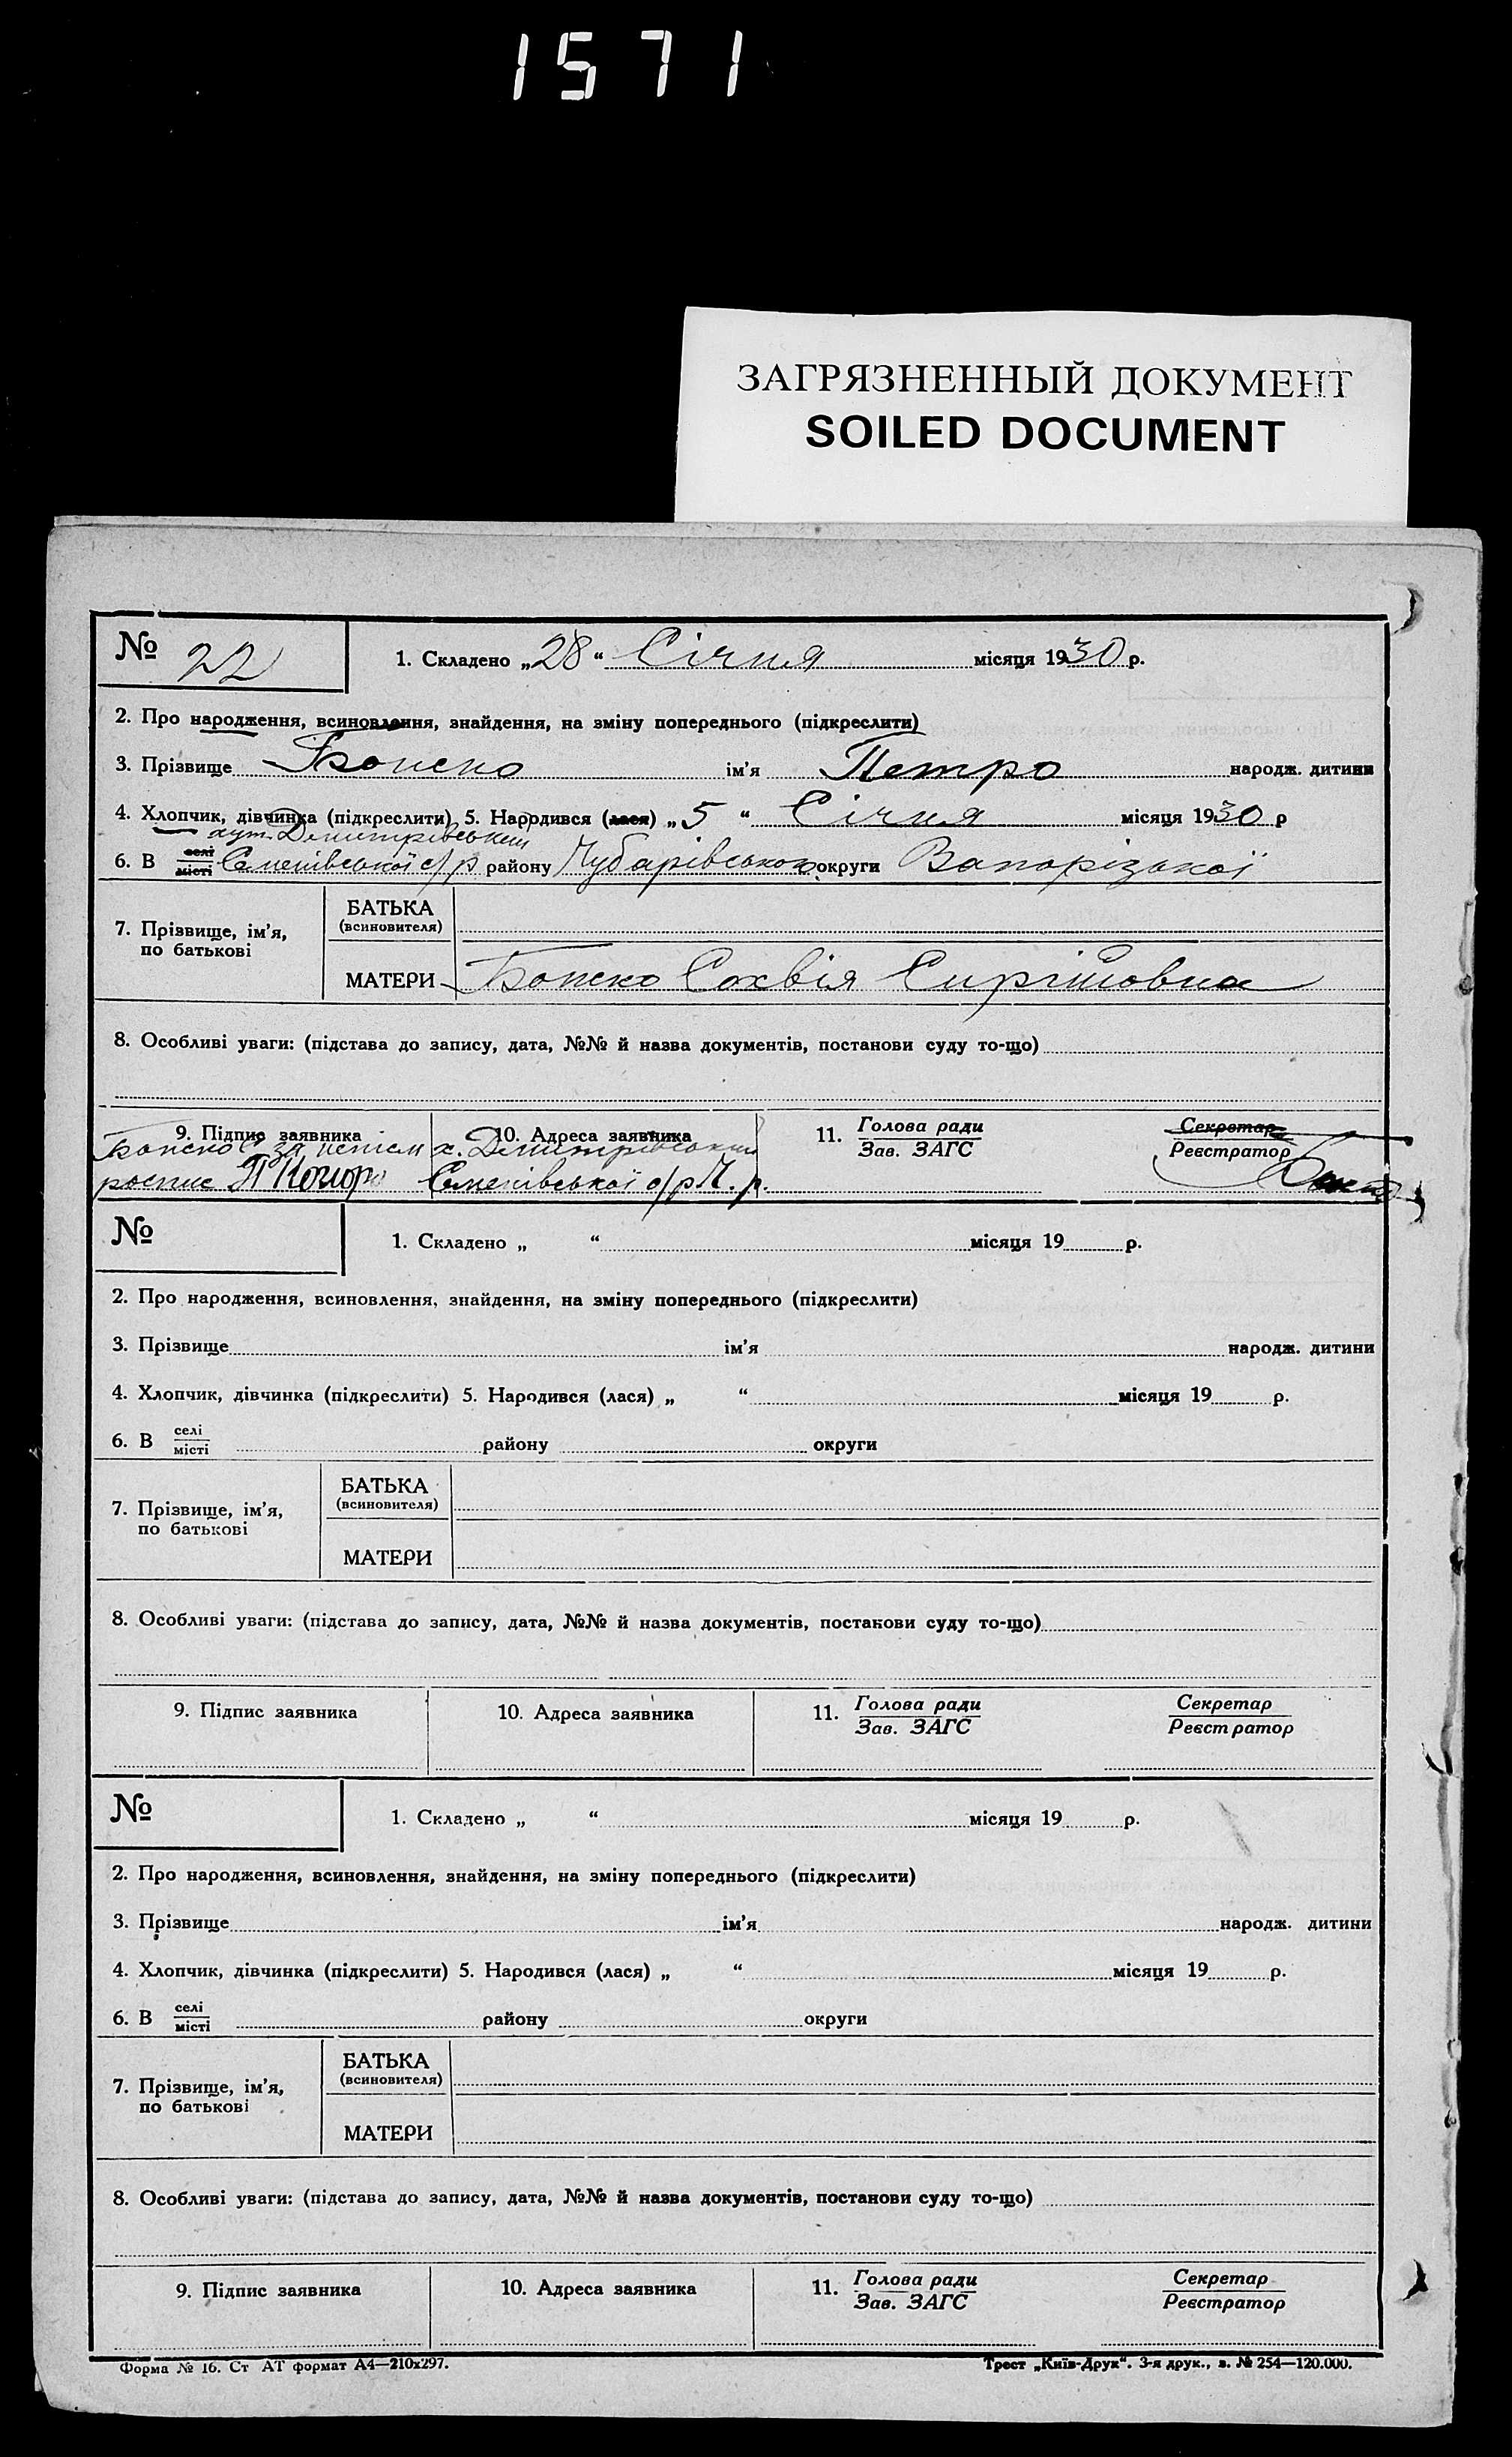 1571
ЗАГРЯЗНЕННЫЙ ДОКУМЕНТ
SOILED DOCUMENT
№ 22
1. Складено „28“ Січня місяця 1930 р.
2. Про народження, всиновлення, знайдення, на зміну попереднього (підкреслити)
3. Прізвище Божко ім'я Петро народж. дитини
4. Хлопчик, дівчинка (підкреслити) 5. Народився (лася) „5“ Січня місяця 1930 р
хут. Дмитрівський
6. В селі місті Семенівської с/р району Чубарівського округи Запорізької
7. Прізвище, ім'я, по батькові
БАТЬКА
(всиновителя)
МАТЕРИ Божко Сохвія
8. Особливі уваги: (підстава до запису, дата, №№ й назва документів, постанови суду то-що)
9. Підпис заявника 10. Адреса заявника 11. Голова ради Секретар
Зав. ЗАГС Реєстратор
Божко С за х. Дмитрівський
роспис Семенівської с/р Ч. р.
№
1. Складено „ “ місяця 19 р.
2. Про народження, всиновлення, знайдення, на зміну попереднього (підкреслити)
3. Прізвище ім'я народж. дитини
4. Хлопчик, дівчинка (підкреслити) 5. Народився (лася) „ “ місяця 19 р.
6. В селі місті району округи
7. Прізвище, ім'я, по батькові
БАТЬКА
(всиновителя)
МАТЕРИ
8. Особливі уваги: (підстава до запису, дата, №№ й назва документів, постанови суду то-що)
9. Підпис заявника 10. Адреса заявника 11. Голова ради Секретар
Зав. ЗАГС Реєстратор
№
1. Складено „ “ місяця 19 р.
2. Про народження, всиновлення, знайдення, на зміну попереднього (підкреслити)
3. Прізвище ім'я народж. дитини
4. Хлопчик, дівчинка (підкреслити) 5. Народився (лася) „ “ місяця 19 р.
6. В селі місті району округи
7. Прізвище, ім'я, по батькові
БАТЬКА
(всиновителя)
МАТЕРИ
8. Особливі уваги: (підстава до запису, дата, №№ й назва документів, постанови суду то-що)
9. Підпис заявника 10. Адреса заявника 11. Голова ради Секретар
Зав. ЗАГС Реєстратор
Форма № 16. Ст АТ формат А4—210х297. Трест „Київ-Друк“. 3-я друк., з. № 254—120.000.